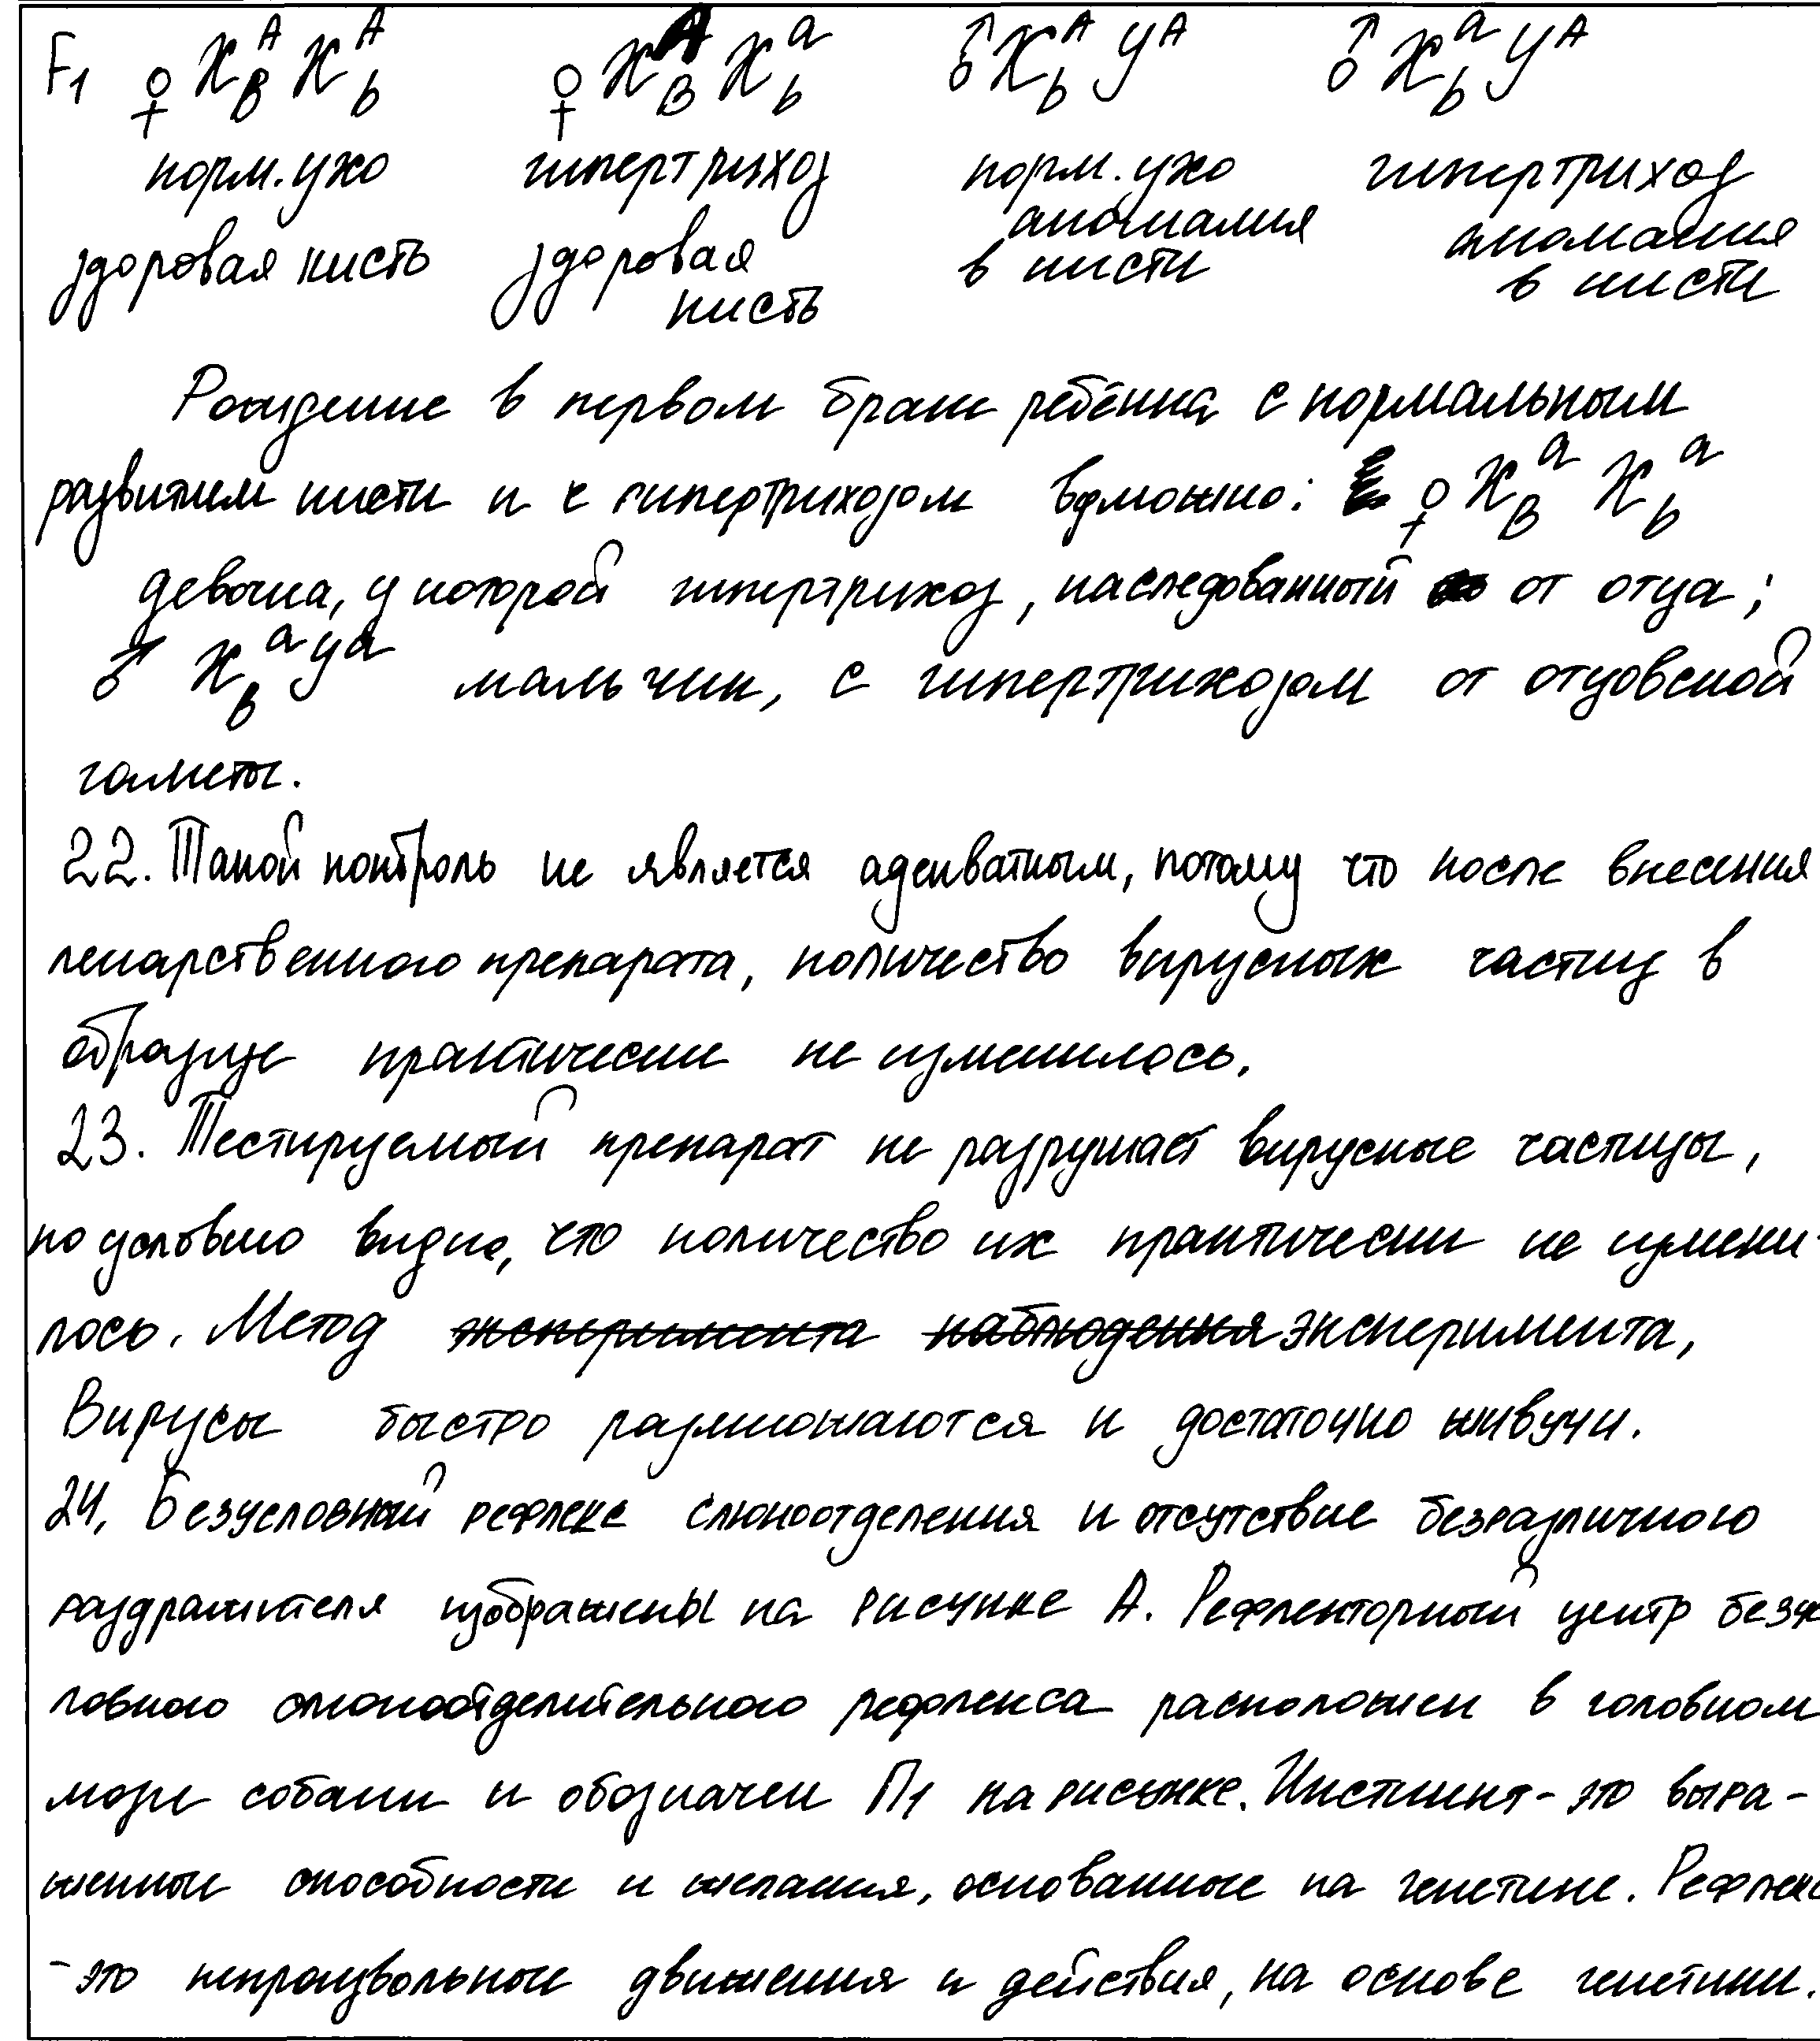 F1 ♀ X^A_B X^A_b ♀ X^A_B X^a_b ♂ X^A_b Y^A ♂ X^a_b Y^A
норм. ухо гипертрихоз норм. ухо гипертрихоз
здоровая кисть здоровая кисть аномалия в кисти аномалия в кисти
Рождение в первом браке ребёнка с нормальным
развитием кисти и с гипертрихозом возможно: ♀ X^a_B X^a_b
девочка, у которой гипертрихоз, наследованный от отца;
♂ X^a_B Y^a мальчик, с гипертрихозом от отцовской
гаметы.
22. Такой контроль не является адекватным, потому что после внесения
лекарственного препарата, количество вирусных частиц в
образце практически не изменилось.
23. Тестируемый препарат не разрушает вирусные частицы,
по условию видно, что количество их практически не измени-
лось. Метод эксперимента наблюдения эксперимента,
Вирусы быстро размножаются и достаточно живучи.
24. Безусловный рефлекс слюноотделения и отсутствие безразличного
раздражителя изображены на рисунке А. Рефлекторный центр безус
ловного слюноотделительного рефлекса расположен в головном
мозге собаки и обозначен П1 на рисунке. Инстинкт - это выра-
женные способности и желания, основанные на генетике. Рефлекс
- это непроизвольные движения и действия, на основе генетики.